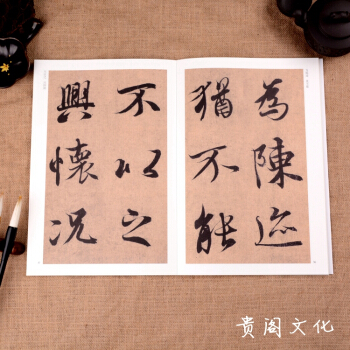 為陳迹
猶不能
不以之
興懷況
贵阁文化